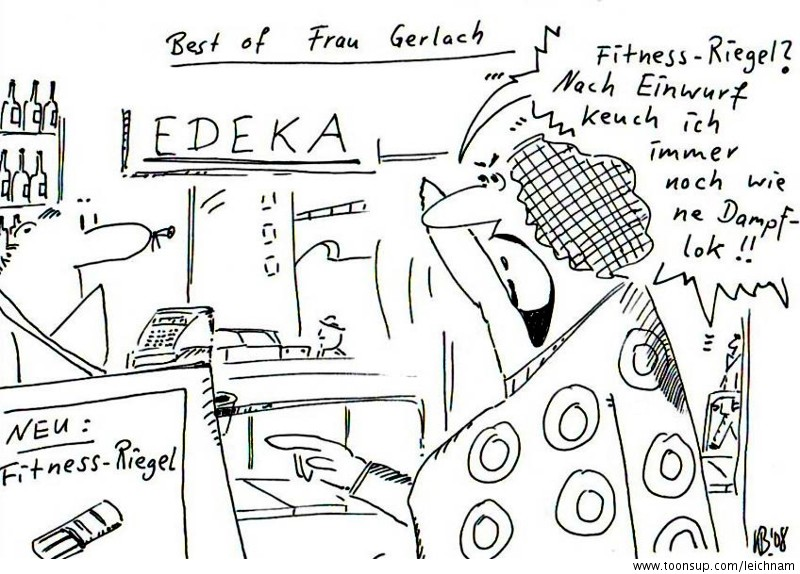 Best of Frau Gerlach
EDEKA
Fitness-Riegel?
Nach Einwurf
keuch ich
immer
noch wie
ne Dampf-
lok!!
NEU:
Fitness-Riegel
www.toonsup.com/leichnam